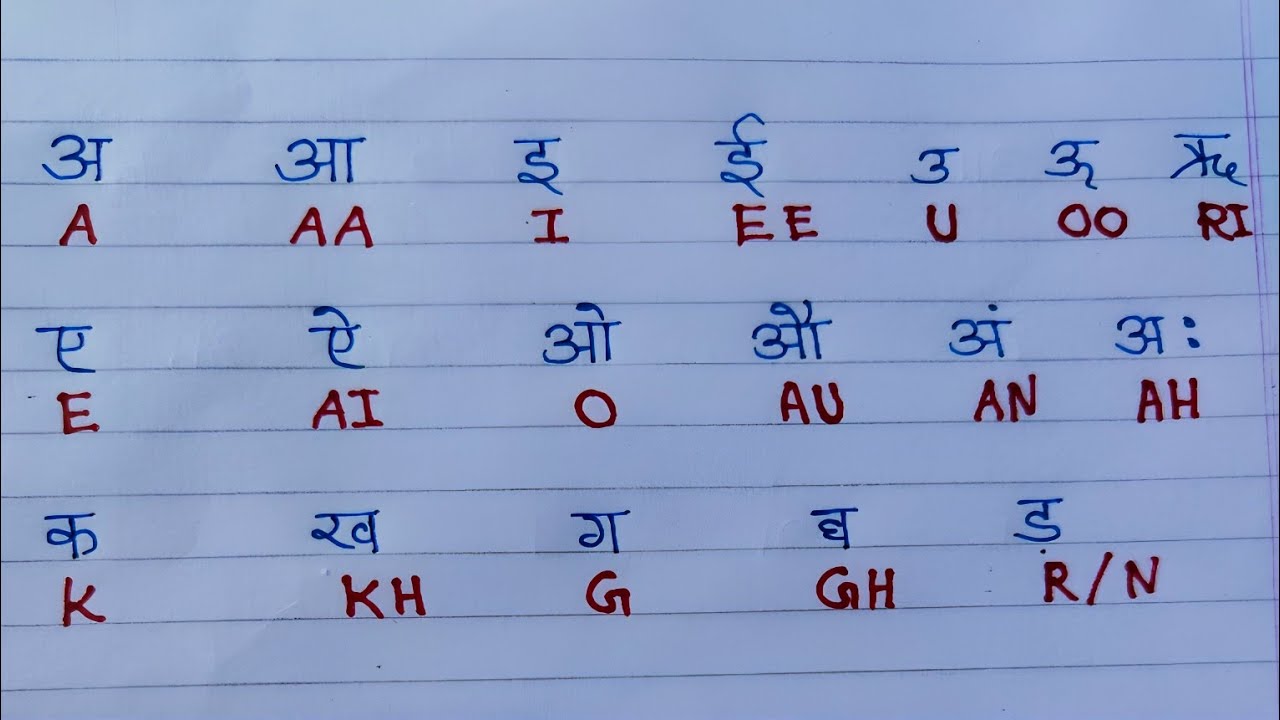 अ आ इ ई उ ऊ ऋ
A AA I EE U OO RI
ए ऐ ओ औ अं अः
E AI O AU AN AH
क ख ग घ ड़
K KH G GH R/N